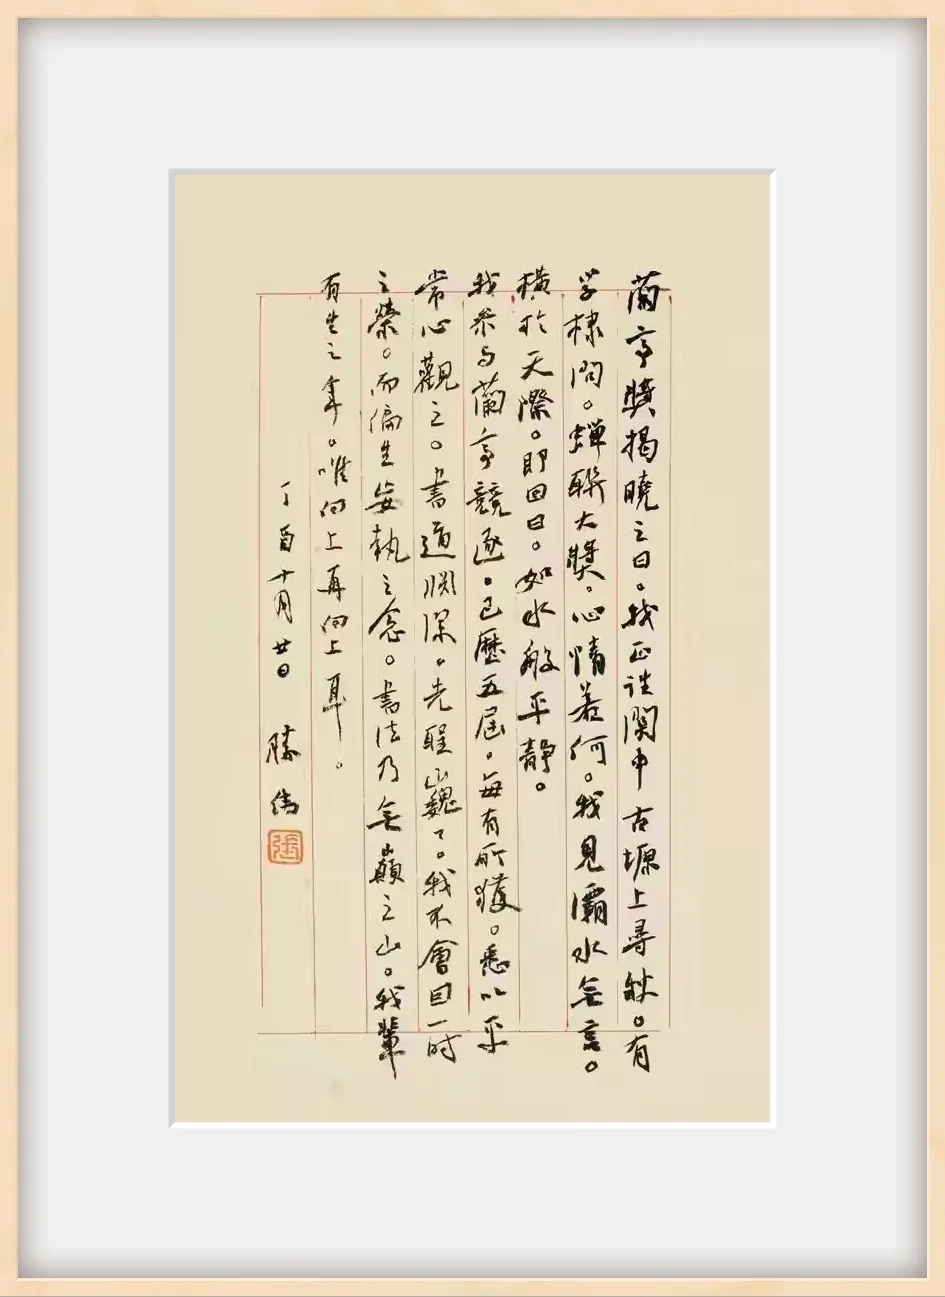 蘭亭獎揭曉之日。我正謹關中古塬上尋缽。有
学棣问。蟬聯大獎。心情若何。我見灞水無言。
橫於天際。即回曰。如水般平靜。
我參与蘭亭競逐。已歷五屆。每有所獲。悉以平
常心觀之。書道淵深。先聖巍巍。我不會因一时
之榮。而偏生妄執之念。書法乃無巔之山。我輩
有生之年。唯向上再向上耳。
丁酉十月廿日 勝偉
張